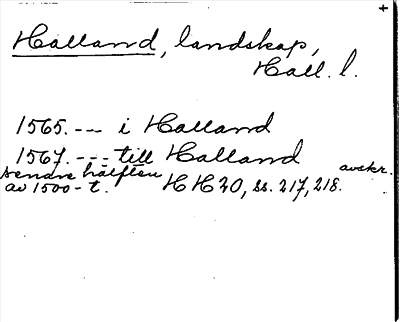 Halland, landskap,
Hall. l.
1565. --- i Halland
1567. --- till Halland
senare hälften avskr.
av 1500-t. HH 20, ss. 217, 218.